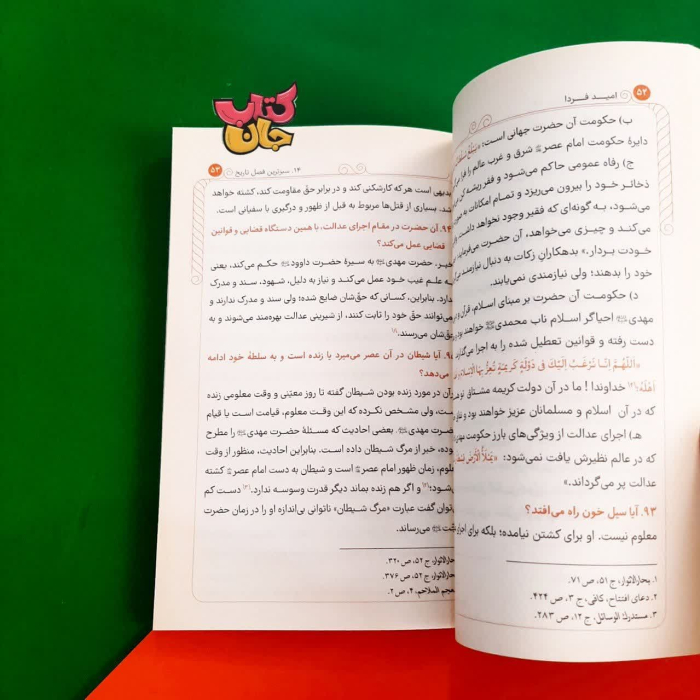 کتاب
جان
۵۲ امید فردا
ب) حکومت آن حضرت جهانی است؛
دایرهٔ حکومت امام عصر شرق و غرب عالم را فرا
ج) رفاه عمومی حاکم می‌شود و فقر ریشه
ذخائر خود را بیرون می‌ریزد و تمام امکانات به
می‌شود، به گونه‌ای که فقیر وجود نخواهد داشت
می‌کند و چیزی می‌خواهد، آن حضرت می‌فرماید
خودت بردار.» بدهکاران زکات به دنبال نیازمند
خود را بدهند؛ ولی نیازمندی نمی‌یابند.
د) حکومت آن حضرت بر مبنای اسلام، قرآن و
مهدی احیاگر اسلام ناب محمدی خواهد بود و
دست رفته و قوانین تعطیل شده را به اجرا
«اَللّهُمَّ اِنّا نَرْغَبُ اِلَیْکَ فی دَوْلَةٍ کَریمَةٍ تُعِزُّ بِهَا الْاِسْلامَ
اَهْلَهُ؛ خداوندا! ما در آن دولت کریمه مشتاق
که در آن اسلام و مسلمانان عزیز خواهند بود و
هـ) اجرای عدالت از ویژگی‌های بارز حکومت مهدی
که در عالم نظیرش یافت نمی‌شود: «یَمْلَأُ الْاَرْضَ
عدالت پر می‌گرداند.»
۹۳. آیا سیل خون راه می‌افتد؟
معلوم نیست. او برای کشتن نیامده؛ بلکه برای
۱. بحارالانوار، ج ۵۱، ص ۷۱.
۲. دعای افتتاح، کافی، ج ۳، ص ۴۲۴.
۳. مستدرک الوسائل، ج ۱۲، ص ۲۸۳.
۱۴. سبزترین فصل تاریخ ۵۳
بدیهی است هر که کارشکنی کند و در برابر حق مقاومت کند، کشته خواهد
شد. بسیاری از قتل‌ها مربوط به قبل از ظهور و درگیری با سفیانی است.
۹۴. آن حضرت در مقام اجرای عدالت، با همین دستگاه قضایی و قوانین
قضایی عمل می‌کند؟
خیر، حضرت مهدی به سیرهٔ حضرت داوود حکم می‌کند، یعنی
به علم غیب خود عمل می‌کند و نیاز به دلیل، شهود، سند و مدرک
ندارد. بنابراین، کسانی که حق‌شان ضایع شده؛ ولی سند و مدرک ندارند و
نمی‌توانند حق خود را ثابت کنند، از شیرینی عدالت بهره‌مند می‌شوند و به
حق‌شان می‌رسند.
آیا شیطان در آن عصر می‌میرد یا زنده است و به سلطهٔ خود ادامه
می‌دهد؟
قرآن در مورد زنده بودن شیطان گفته تا روز معیّنی و وقت معلومی زنده
است، ولی مشخص نکرده که این وقت معلوم، قیامت است یا قیام
حضرت مهدی. بعضی احادیث که مسئلهٔ حضرت مهدی را مطرح
کرده، خبر از مرگ شیطان داده است. بنابراین احادیث، منظور از وقت
معلوم، زمان ظهور امام عصر است و شیطان به دست امام عصر کشته
می‌شود؛ و اگر هم زنده بماند دیگر قدرت وسوسه ندارد. دست کم
می‌توان گفت عبارت «مرگ شیطان» ناتوانی بی‌اندازه او را در زمان حضرت
می‌رساند.
بحارالانوار، ج ۵۲، ص ۳۲۰.
بحارالانوار، ج ۵۲، ص ۳۷۶.
معجم الملاحم، ۲، ص ۲.